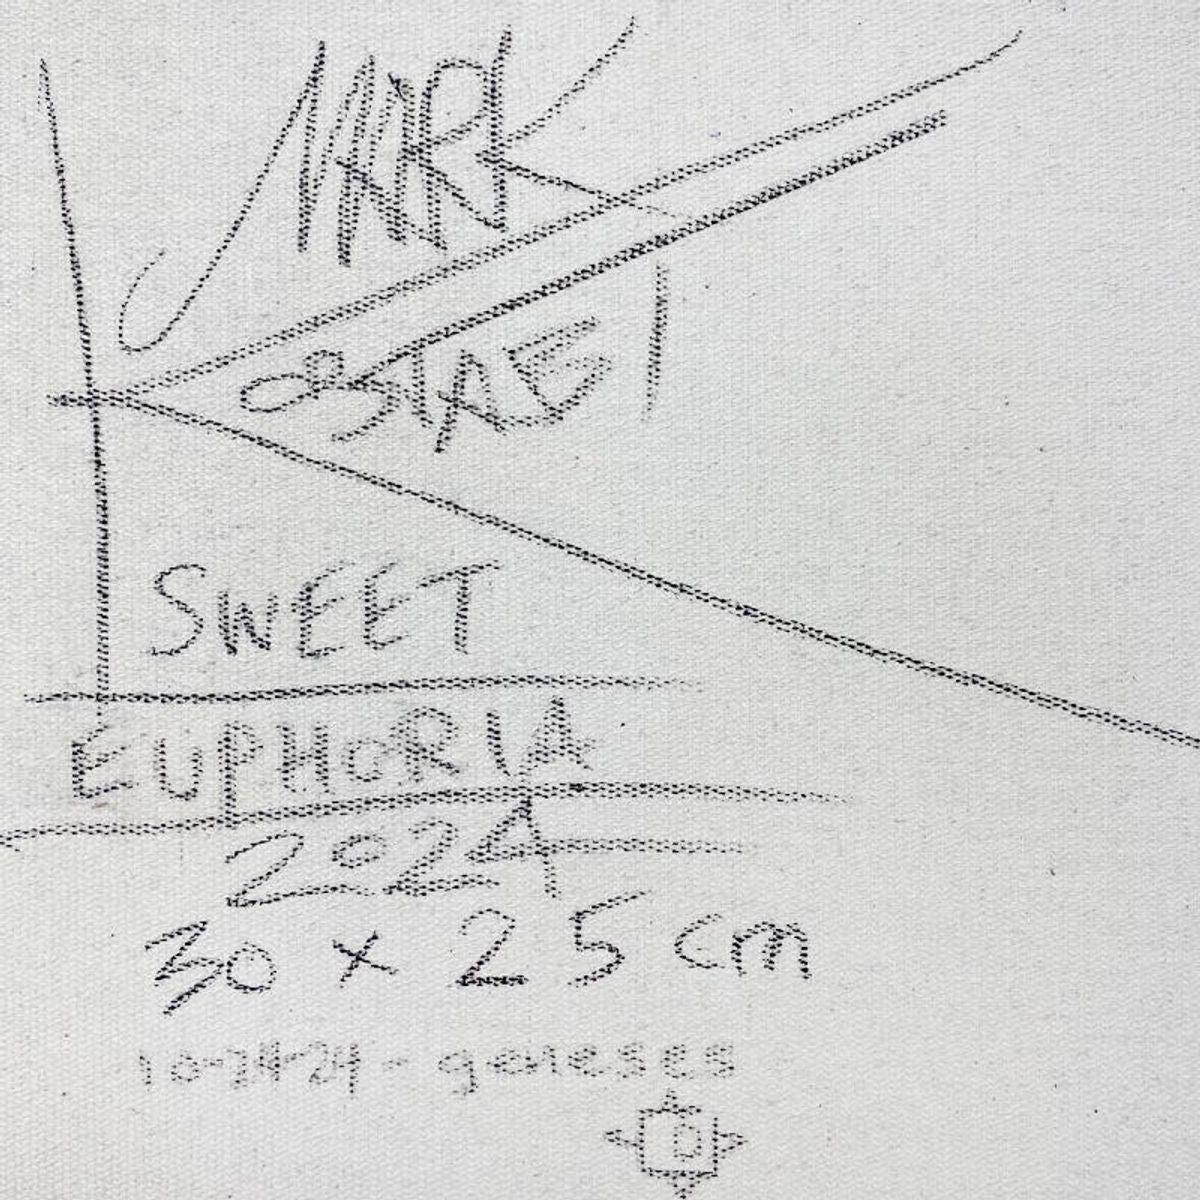 MARK
SWEET
EUPHORIA
2024
30 x 25 cm
10-24-24 - geneses